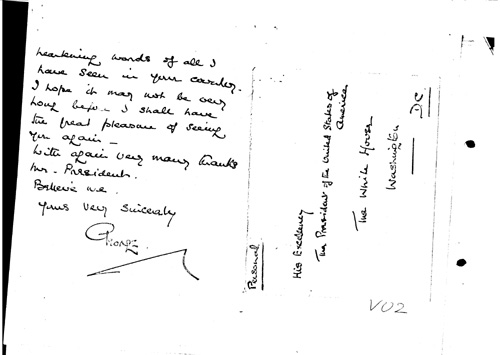 heartening words of all I
have seen in your country.
I hope it may not be very
long before I shall have
the great pleasure of seeing
you again –
With again very many thanks
Mr. President.
Believe me.
Yours very sincerely
George
Personal
His Excellency
The President of the United States of
America
The White House
Washington
DC
VO2